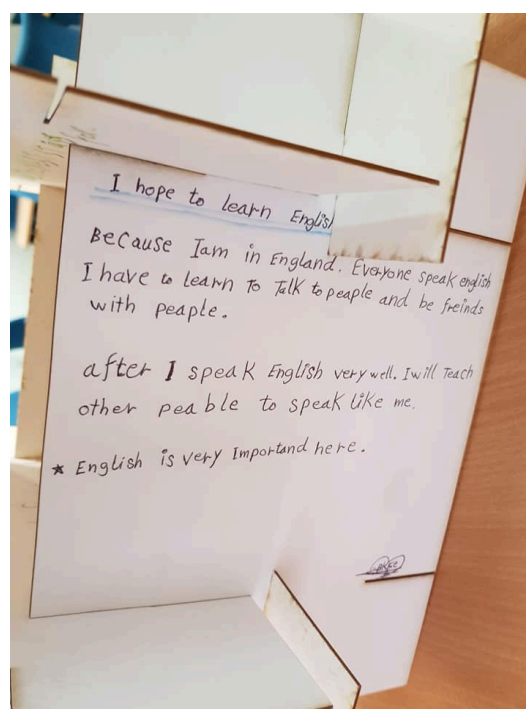 I hope to learn Englis
Because Iam in England. Everyone speak english
I have to learn To Talk to peaple and be freinds
with peaple.
after I speak English very well. I will Teach
other peable to speak like me.
* English is very Importand here.